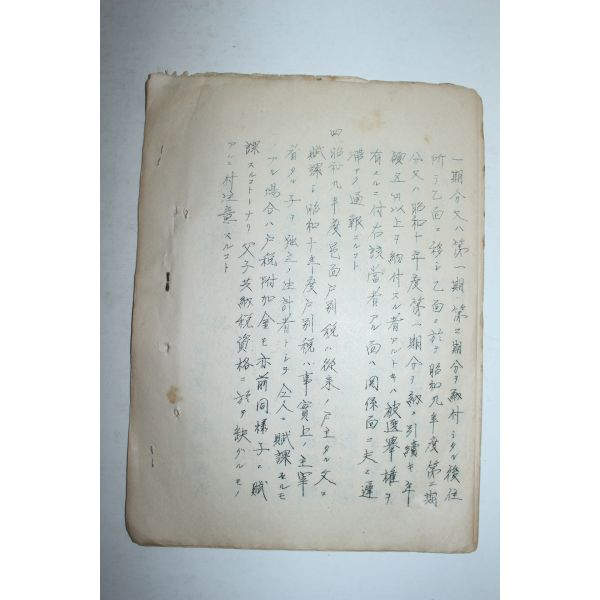 一期分又ハ第一期、第二期分ヲ納付シタル後住
所ヲ乙面ニ移シ乙面ニ於テ昭和九年度第二期
分又ハ昭和十年度第一期分ヲ納メ引續キ年
額五円以上ヲ納付スル者アルトキハ被選擧權ヲ
有スルニ付右該當者アル面ハ関係面ニ夫々遲
滯ナク通報スルコト
四、昭和九年度邑面戸別税ハ從来ノ戸主タル父ニ
賦課シ昭和十年度戸別税ハ事實上ノ主宰
者タル子ヲ独立ノ生計者トシテ仝人ニ賦課セルモノ
アル場合ハ戸税附加金モ亦前同様子ニ賦
課スルコトナリ父子共納税資格ニ於テ缺グルモノ
アルニ付注意スルコト